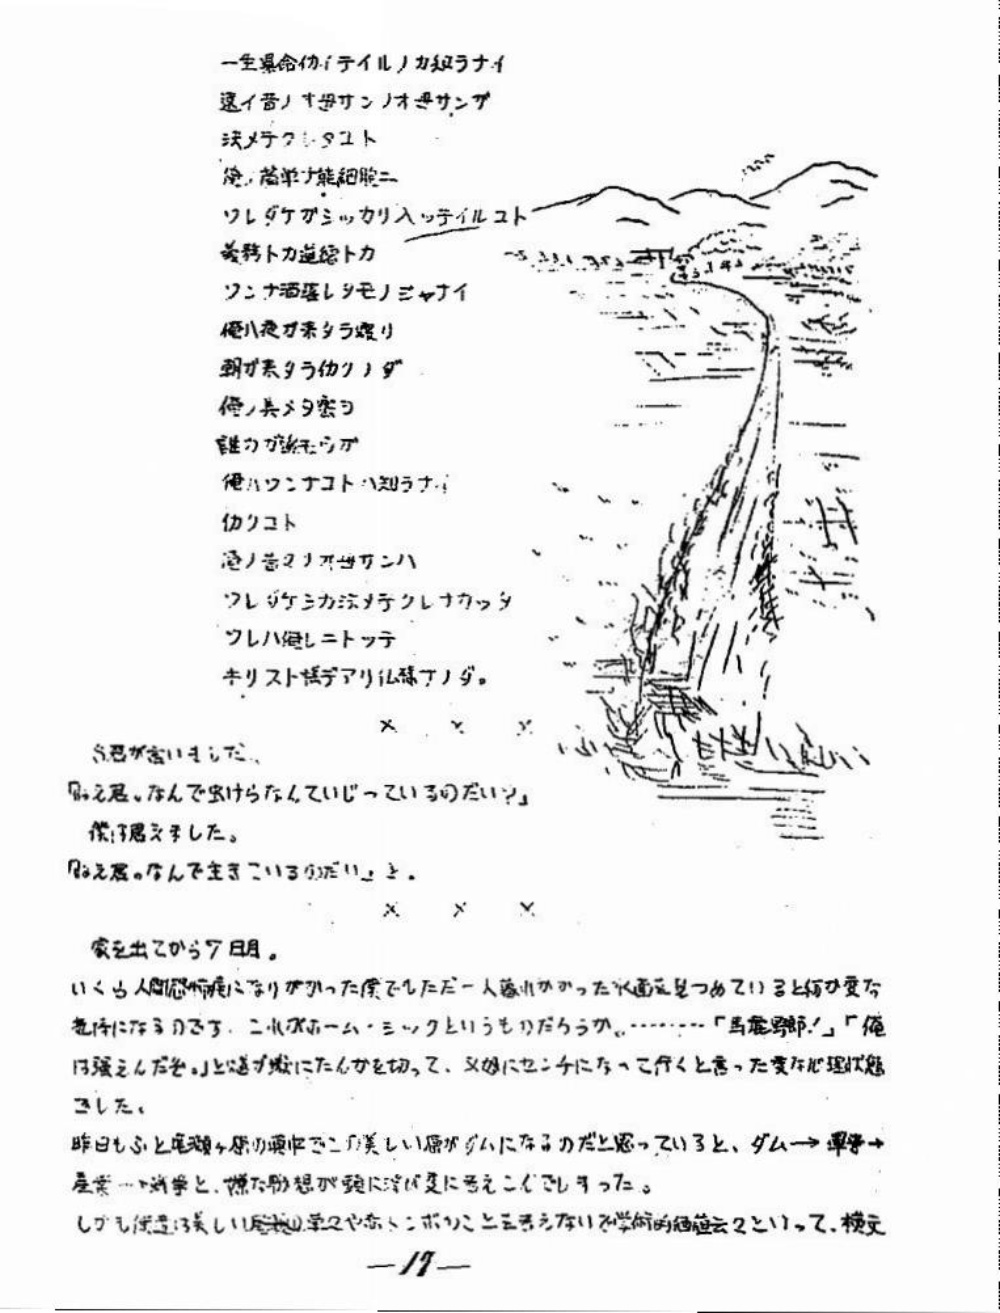 一生懸命仂イテイルノカ知ラナイ
遠イ昔ノオ母サンノオ母サンガ
決メテクレタコト
俺ノ簡単ナ脳細胞ニ
ソレダケガシッカリ入ッテイルコト
義務トカ道徳トカ
ソンナ洒落レタモノジャナイ
俺ハ夜ガ来タラ眠リ
朝ガ来タラ仂クノダ
俺ノ集メタ蜜ヲ
誰カガ
俺ハソンナコトハ知ラナイ
仂クコト
俺ノ昔ノオ母サンハ
ソレダケシカ決メテクレナカッタ
ソレハ俺レニトッテ
キリスト様デアリ仏様ナノダ。
× × ×
君が言いました。
「ねえ君。なんで虫けらなんていじっているのだい?」
僕は答えました。
「ねえ君。なんで生きているのだい」と。
× × ×
家を出てから7日目。
いくら人間恐怖症になりかかった僕でもただ一人暮れかかった水面を見つめていると何か変な
気持になるのです。これがホーム・シックというものだろうか。………「馬鹿野郎!」「俺
は強えんだぞ。」と たんかを切って、又 にセンチになって行くと言った変な心理状態
でした。
昨日もふと尾瀬ヶ原の Nこの美しい原がダムになるのだと思っていると、ダム→軍事→
産業→戦争と、嫌な予想が頭に浮び 考えこんでしまった。
しかも僕達は美しい 草 や赤トンボのことを考えないで学術的価値云々といって、検文
—17—